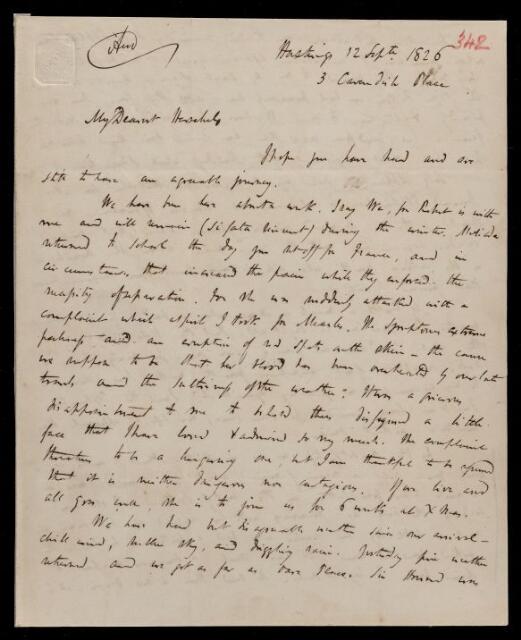 And
348
Hastings 12 Septr. 1826
3 Cavendish Place
My Dearest Herschel
I hope you have had and are
still to have an agreable journey.
We have been here about a week. I say We, for Robert is with
me and will remain (si fata sinant) during the winter. Matilda
returned to School the day you set off for France, and in
circumstances that increased the pain while they enforced the
necessity of separation. For she was suddenly attacked with a
complaint which at first I took for Measles. The symptoms
perhaps and an eruption of red spots on the skin - the cause
we suppose to be that her blood has been overheated by our late
travels and the of the weather. It was a grievous
disappointment to me to behold thus disfigured a little
face that I have loved & admired so very much. The complaint
threatens to be a lingering one, but I am thankful to be assured
that it is neither dangerous nor contagious. If we live and
all goes well, she is to join us for 6 weeks at Xmas.
We have had but disagreable weather since our arrival -
chill wind, sky, and drizzling rain. Yesterday fine weather
returned and we got as far as Place. Sir Howard was